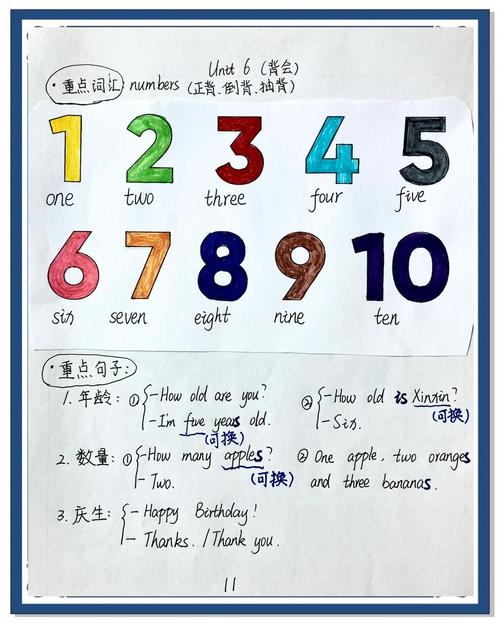 Unit 6 (背会)
·重点词汇: numbers (正背.倒背.抽背)
1 2 3 4 5
one two three four five
6 7 8 9 10
six seven eight nine ten
·重点句子:
1. 年龄: ① -How old are you? ② -How old is Xinxin?
-I'm five years old. -Six.
(可换) (可换)
2. 数量: ① -How many apples? ② One apple, two oranges
-Two. (可换) and three bananas.
3. 庆生: - Happy Birthday!
- Thanks. / Thank you.
11